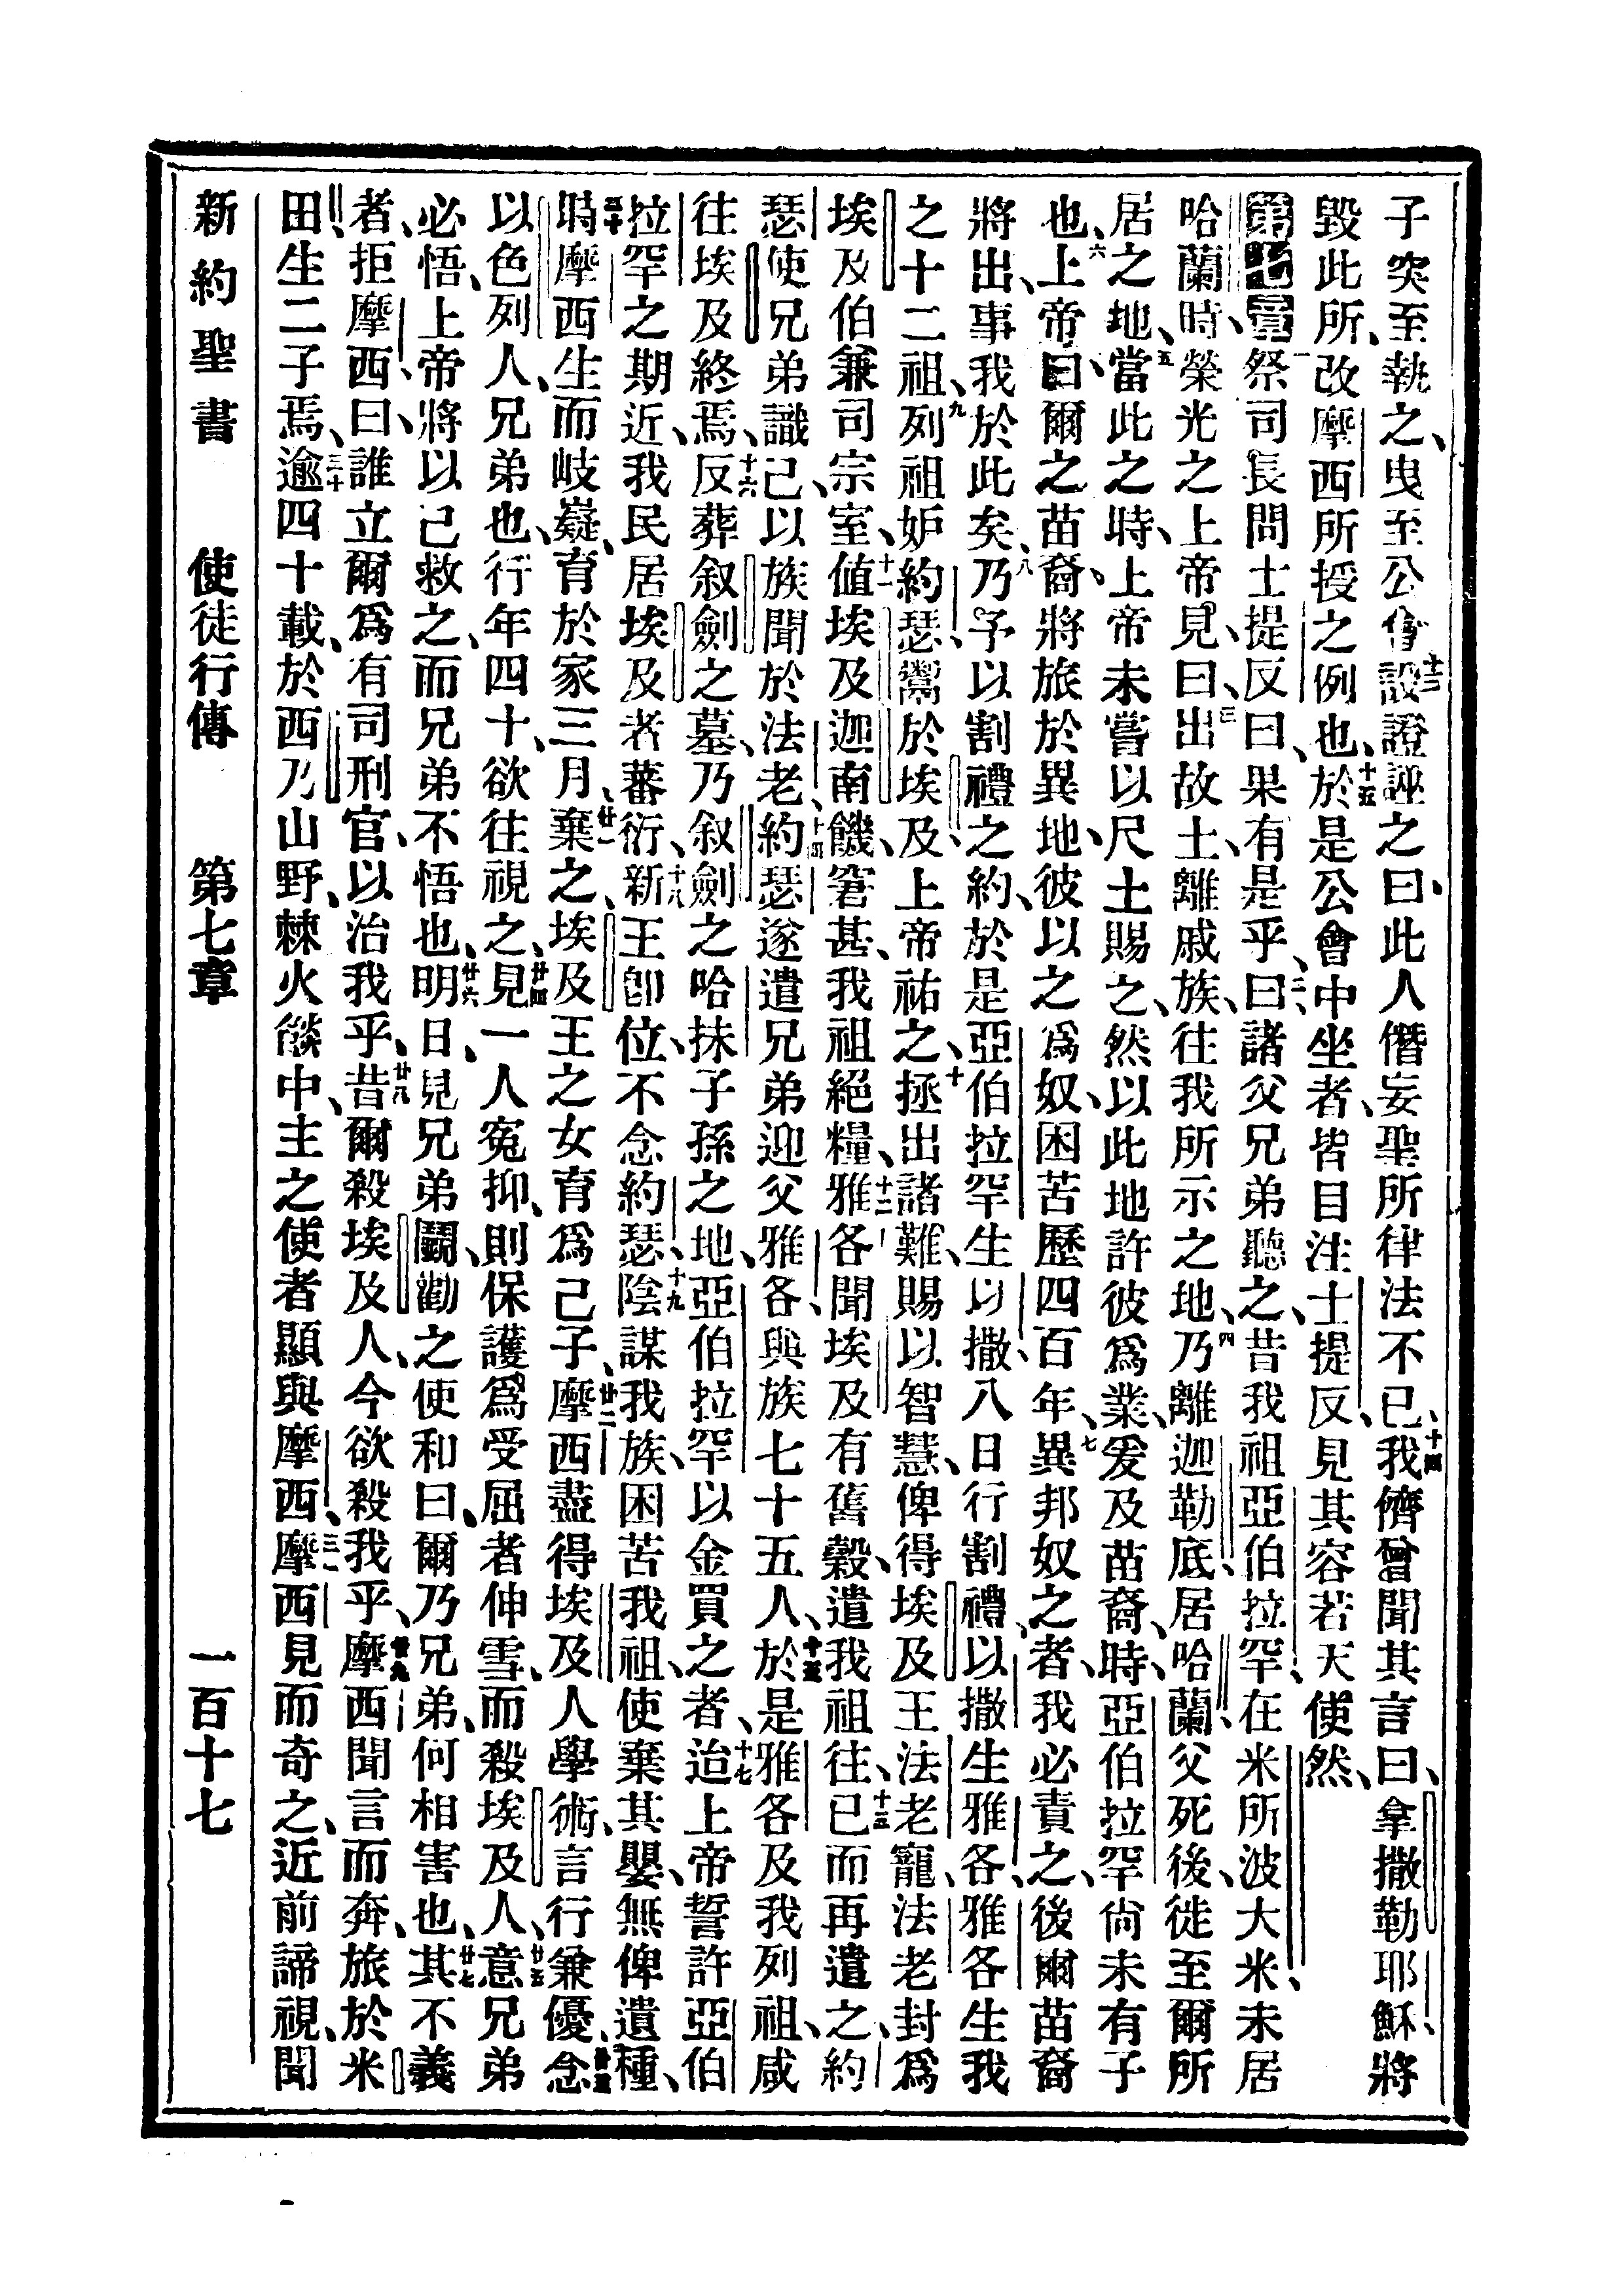 子突至執之、曳至公會、十三設證誣之曰、此人僭妄聖所律法不已、十四我儕曾聞其言曰、拿撒勒耶穌、將
毀此所、改摩西所授之例也、十五於是公會中坐者、皆目注士提反、見其容若天使然、
第七章一祭司長問士提反曰、果有是乎、二曰、諸父兄弟聽之、昔我祖亞伯拉罕、在米所波大米、未居
哈蘭時、榮光之上帝見、曰、三出故土、離戚族、往我所示之地、四乃離迦勒底、居哈蘭、父死後、徙至爾所
居之地、五當此之時、上帝未嘗以尺土賜之、然以此地許彼爲業、爰及苗裔、時、亞伯拉罕尚未有子
也、六上帝曰、爾之苗裔、將旅於異地、彼以之爲奴、困苦歷四百年、七異邦奴之者、我必責之、後爾苗裔
將出、事我於此矣、八乃予以割禮之約、於是亞伯拉罕生以撒、八日行割禮、以撒生雅各、雅各生我
之十二祖、九列祖妒約瑟、鬻於埃及、上帝祐之、十拯出諸難、賜以智慧、俾得埃及王法老寵、法老封爲
埃及伯、兼司宗室、十一値埃及迦南饑、窘甚、我祖絕糧、十二雅各聞埃及有舊穀、遣我祖往、十三已而再遣之、約
瑟使兄弟識己、以族聞於法老、十四約瑟遂遣兄弟迎父雅各、與族七十五人、十五於是雅各及我列祖、咸
往埃及終焉、十六反葬叙劍之墓、乃叙劍之哈抹子孫之地、亞伯拉罕以金買之者、十七迨上帝誓許亞伯
拉罕之期近、我民居埃及者蕃衍、十八新王卽位、不念約瑟、十九陰謀我族、困苦我祖、使棄其嬰、無俾遺種、
二十時摩西生而岐嶷、育於家三月、廿一棄之、埃及王之女育爲己子、廿二摩西盡得埃及人學術、言行兼優、廿三念
以色列人、兄弟也、行年四十、欲往視之、廿四見一人寃抑、則保護爲受屈者伸雪、而殺埃及人、廿五意兄弟
必悟、上帝將以己救之、而兄弟不悟也、廿六明日、見兄弟鬭、勸之使和曰、爾乃兄弟、何相害也、廿七其不義
者、拒摩西曰、誰立爾爲有司刑官、以治我乎、廿八昔爾殺埃及人、今欲殺我乎、廿九摩西聞言而奔、旅於米
田、生二子焉、三十逾四十載、於西乃山野、棘火燄中、主之使者顯與摩西、三一摩西見而奇之、近前諦視、聞
新約聖書　使徒行傳　第七章　一百十七